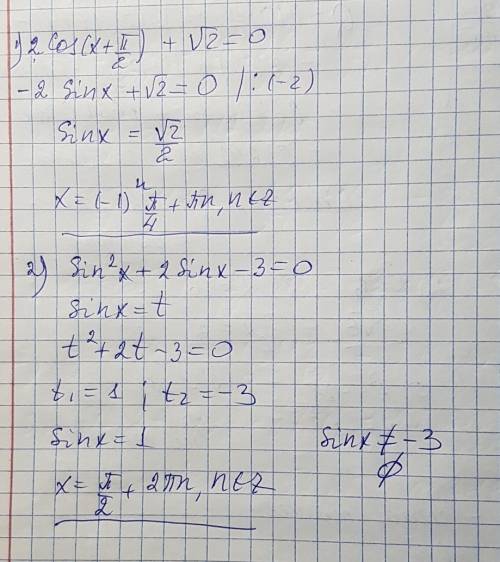 1) 2 cos(x + π/2) + √2 = 0
-2 sinx + √2 = 0 /:(-2)
sinx = √2/2
x = (-1)ⁿ π/4 + πn, n ∈ Z
2) sin²x + 2 sinx - 3 = 0
sinx = t
t² + 2t - 3 = 0
t₁ = 1 ; t₂ = -3
sinx = 1 sinx ≠ -3
∅
x = π/2 + 2πn, n ∈ Z